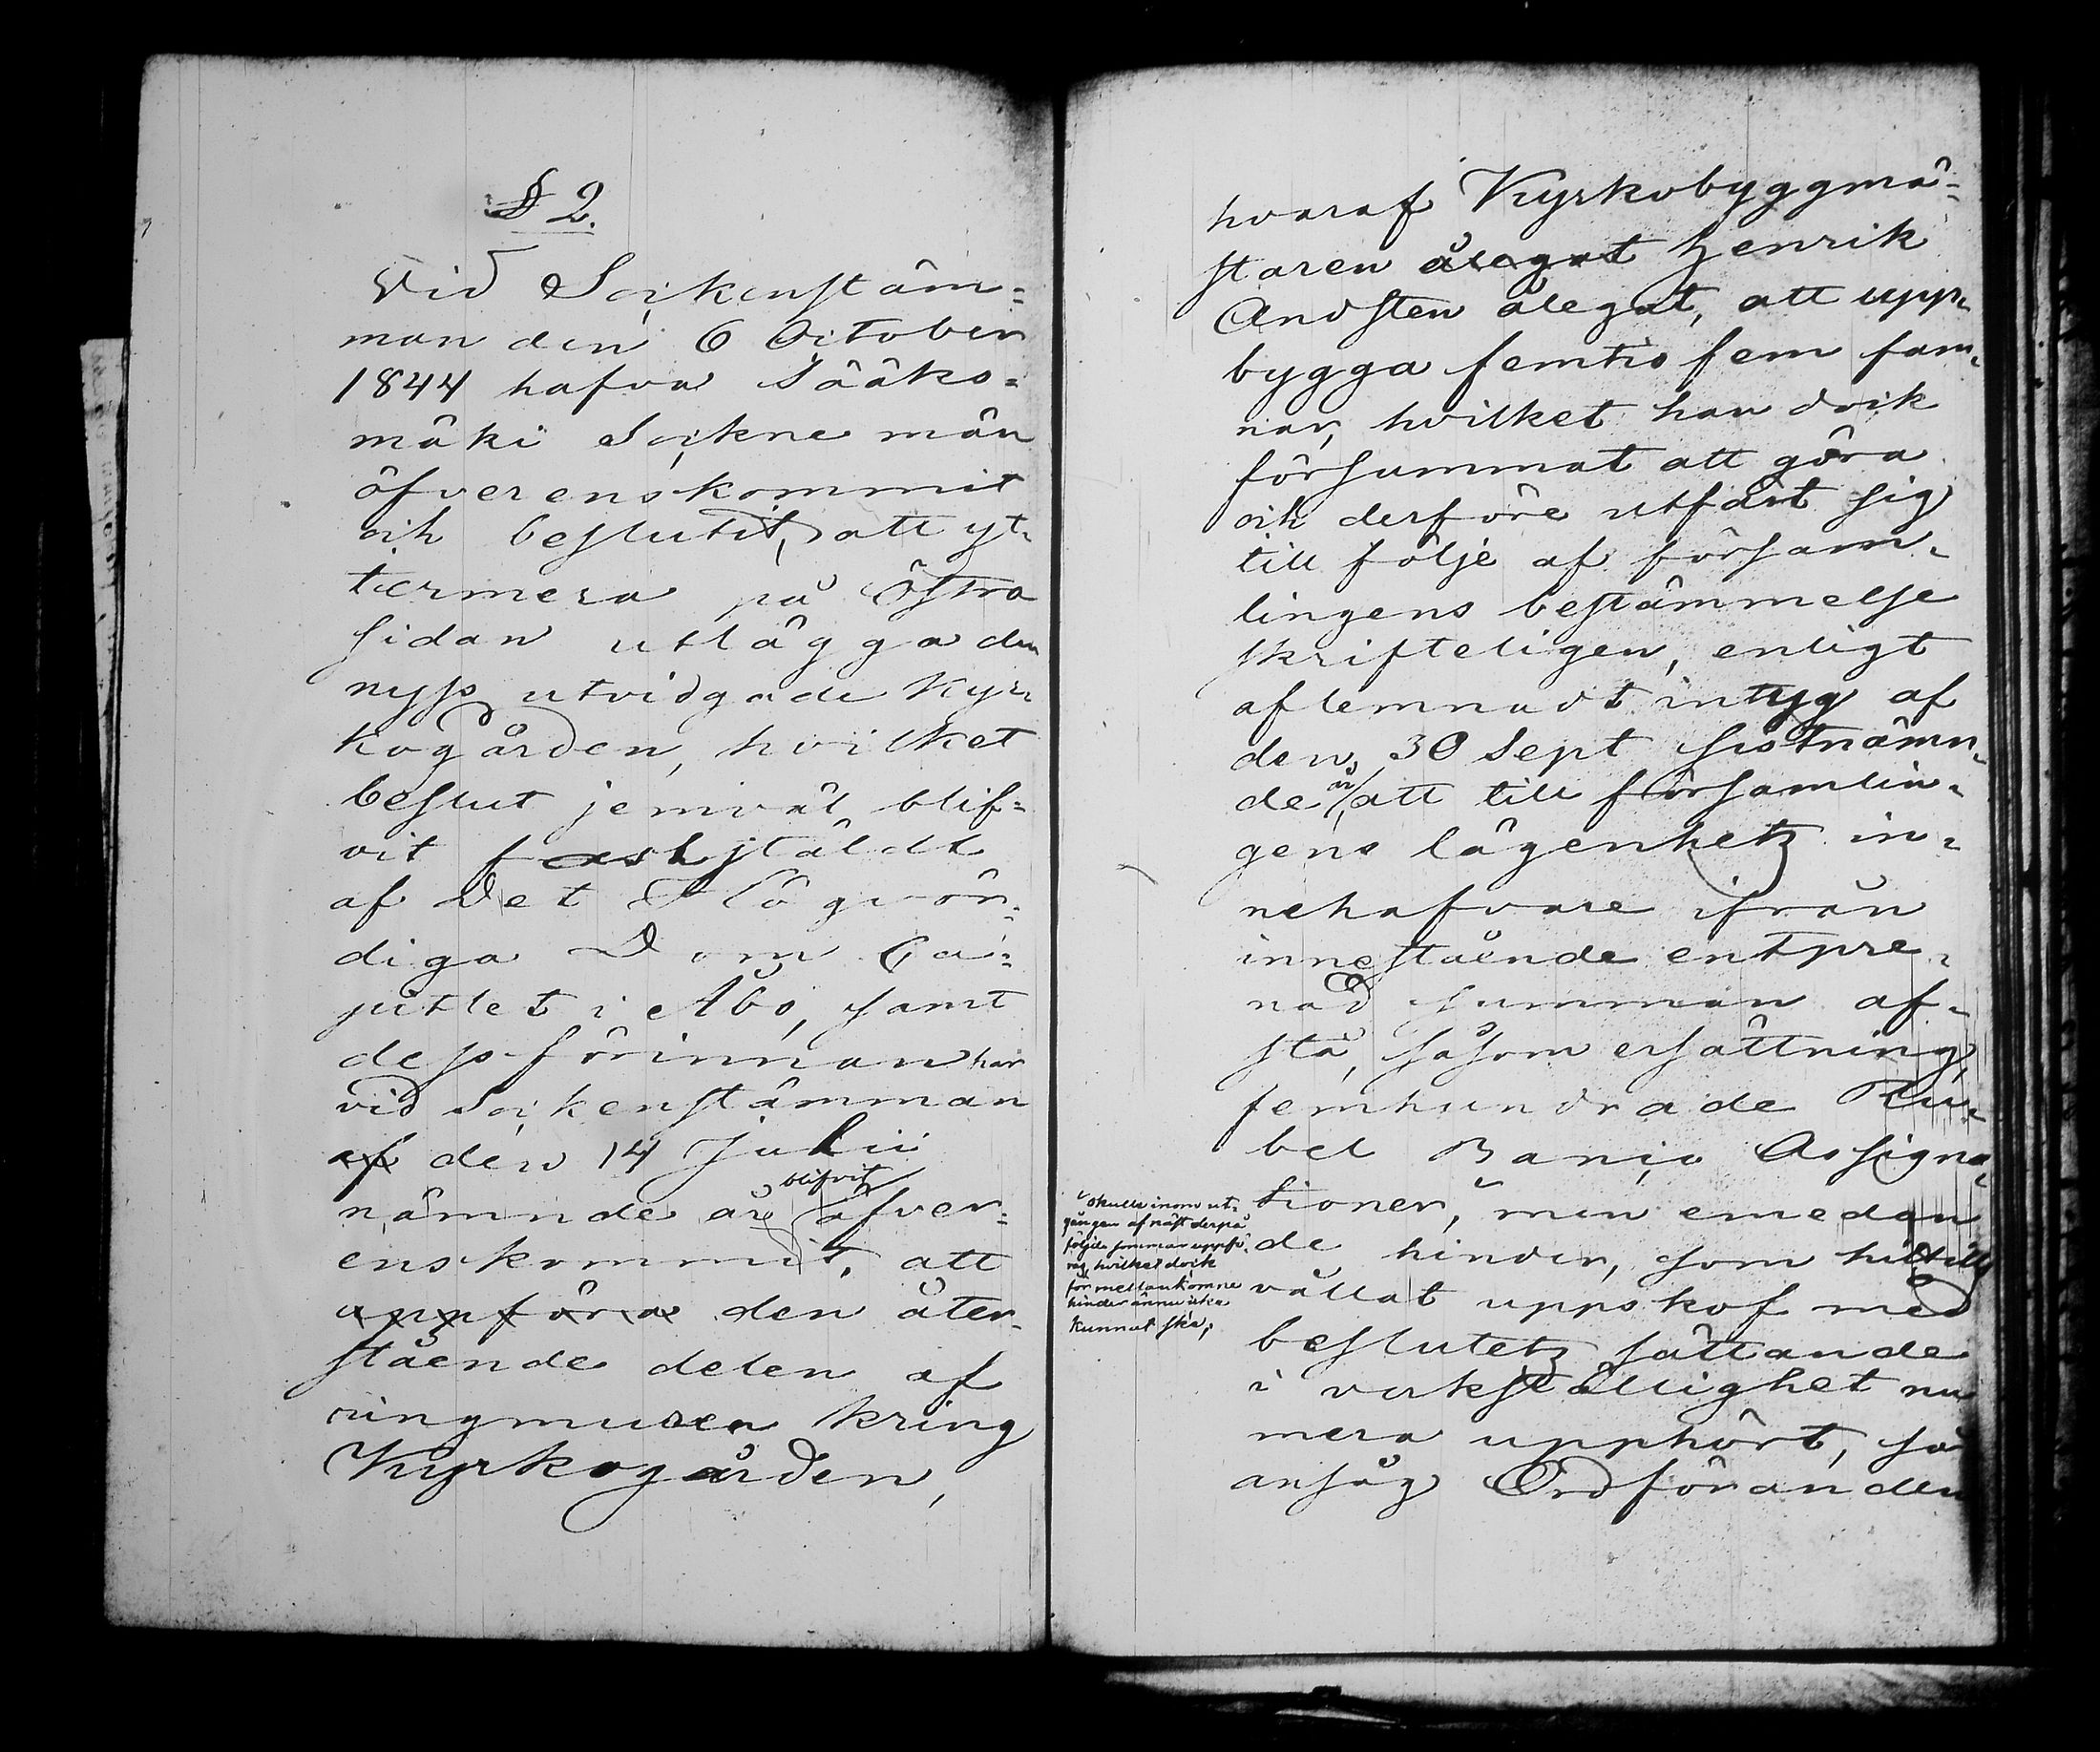 § 2.
Vid Sockenstäm=
man den 6 October
1844 hafva Sääks=
mäki Sockne män
öfverenskommit
och beslutit, att yt=
termera på Östra
sidan utlägga den
nyss utvidgade Kyr=
kogården, hvilket
beslut jemväl blif=
vit fastställdt
af Det Högvör=
diga Dom Ca=
pitlet i Åbo, samt
dessförinnan har
vid Sockenstämman
af den 14 Julii
blifvit
nämnde år öfver=
enskommit, att
uppföra den åter=
stående delen af
ringmuren kring
Kyrkogården,
hvaraf Kyrkobyggmä=
staren ålegat Henrik
Andsten ålegat, att upp=
bygga femtio fem fam=
nar, hvilket han dock
försummat att göra
och derföre utfäst sig
till följe af försam=
lingens bestämmelse
skrifteligen, enligt
aflemnadt intyg af
den 30 Sept sistnämn=
de år, att till församlin=
gens lägenhetz in=
nehafvare ifrån
innestående entpre=
nad summan af=
stå, såsom ersättning,
femhundrade Ru=
bel Banco Assigna=
tioner, men emedan
de hinder, som hittills
vållat uppskof med
beslutetz sättande
i verkställighet nu
mera upphört, så
ansåg Ordföranden
skulle inom ut=
gången af näst derpå
följde sommar uppfö=
ras, hvilket dock
för mellankomne
hinder ännu icke
kunnat ske,